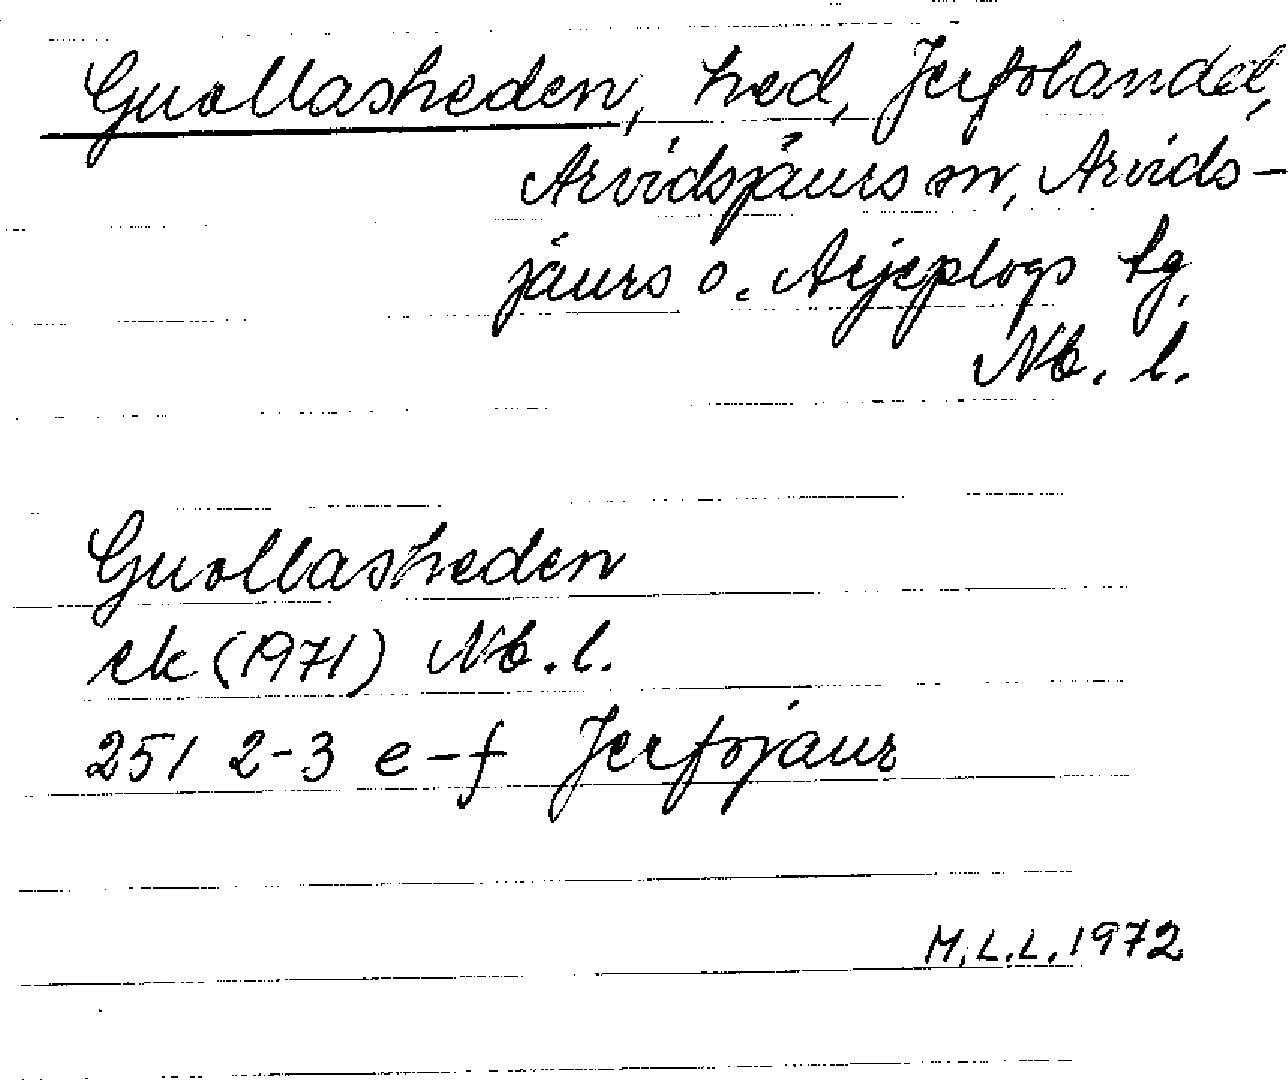 Guollasheden, hed, Jerfolandet,
Arvidsjaurs sn, Arvids-
jaurs o. Arjeplogs tg,
Nb. l.
Guollasheden
ek (1971) Nb. l.
25I 2-3 e-f Jerfojaur
M.L.L. 1972